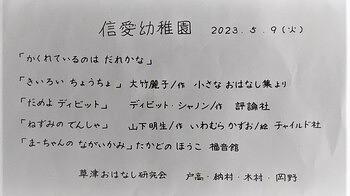 信愛幼稚園 2023.5.9(火)
「かくれているのは だれかな」
「きいろい ちょうちょ」 大竹麗子/作 小さな おはなし集 より
「だめよ デイビット」 デイビット・シャノン/作 評論社
「ねずみの でんしゃ」 山下明生/作 いわむら かずお/絵 チャイルド社
「まーちゃんの ながいかみ」 たかどの ほうこ 福音館
草津おはなし研究会 戸高・納村・木村・岡野